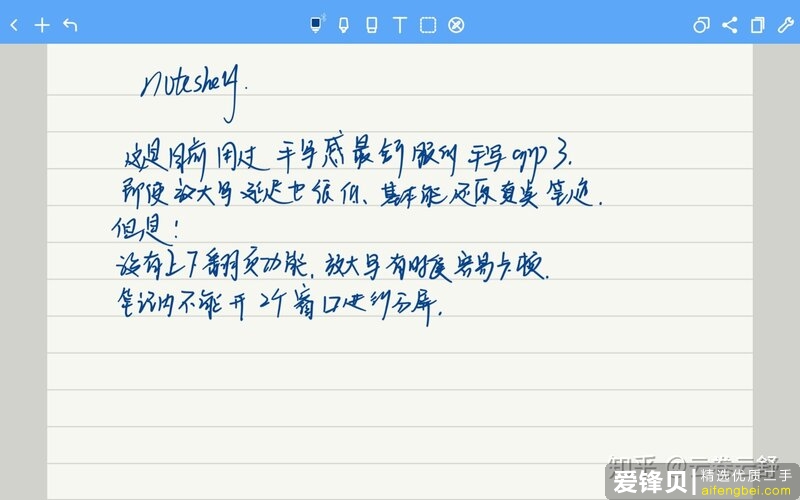 noteshelf.
这是目前用过手写感最舒服的手写app了.
即使放大写延迟也很低、基本能还原真实笔迹.
但是!
没有上下翻页功能,放大写有时候容易卡顿.
笔记内不能开2个窗口进行分屏.
知乎 @云卷云舒
爱锋贝 精选优质二手
aifengbei.com